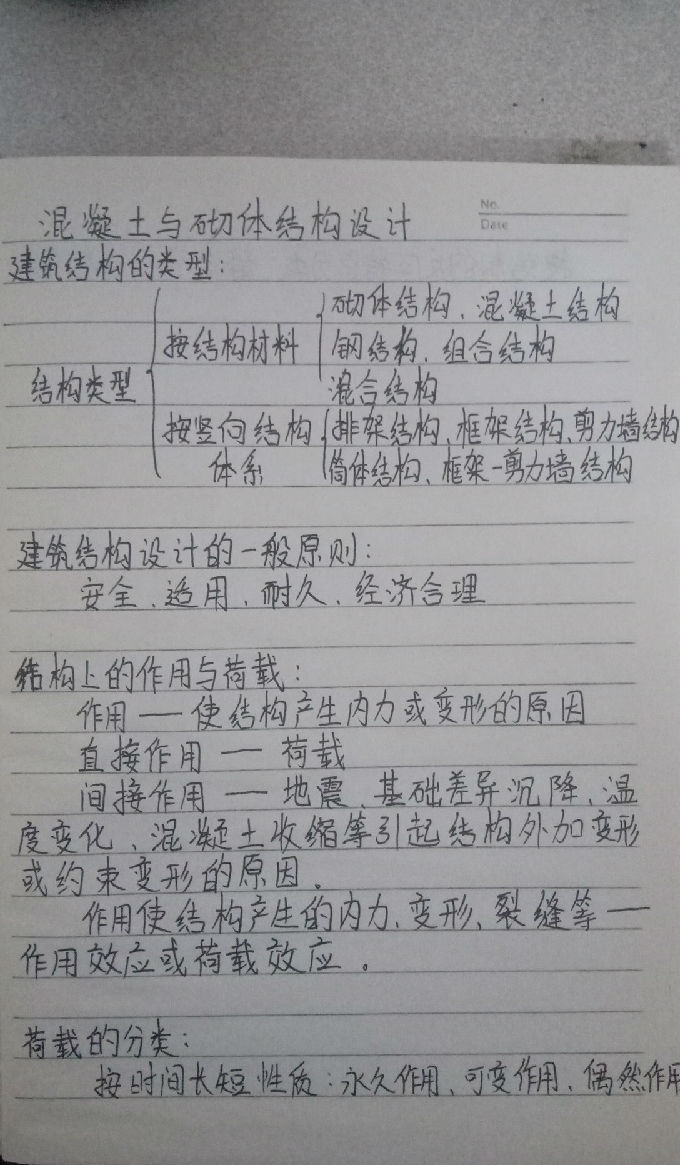 No.
Date
混凝土与砌体结构设计
建筑结构的类型:
砌体结构、混凝土结构
按结构材料 钢结构、组合结构
结构类型 混合结构
按竖向结构 排架结构、框架结构、剪力墙结构
体系 筒体结构、框架-剪力墙结构
建筑结构设计的一般原则:
安全、适用、耐久、经济合理
结构上的作用与荷载:
作用——使结构产生内力或变形的原因
直接作用——荷载
间接作用——地震、基础差异沉降、温
度变化、混凝土收缩等引起结构外加变形
或约束变形的原因。
作用使结构产生的内力、变形、裂缝等——
作用效应或荷载效应。
荷载的分类:
按时间长短性质:永久作用、可变作用、偶然作用